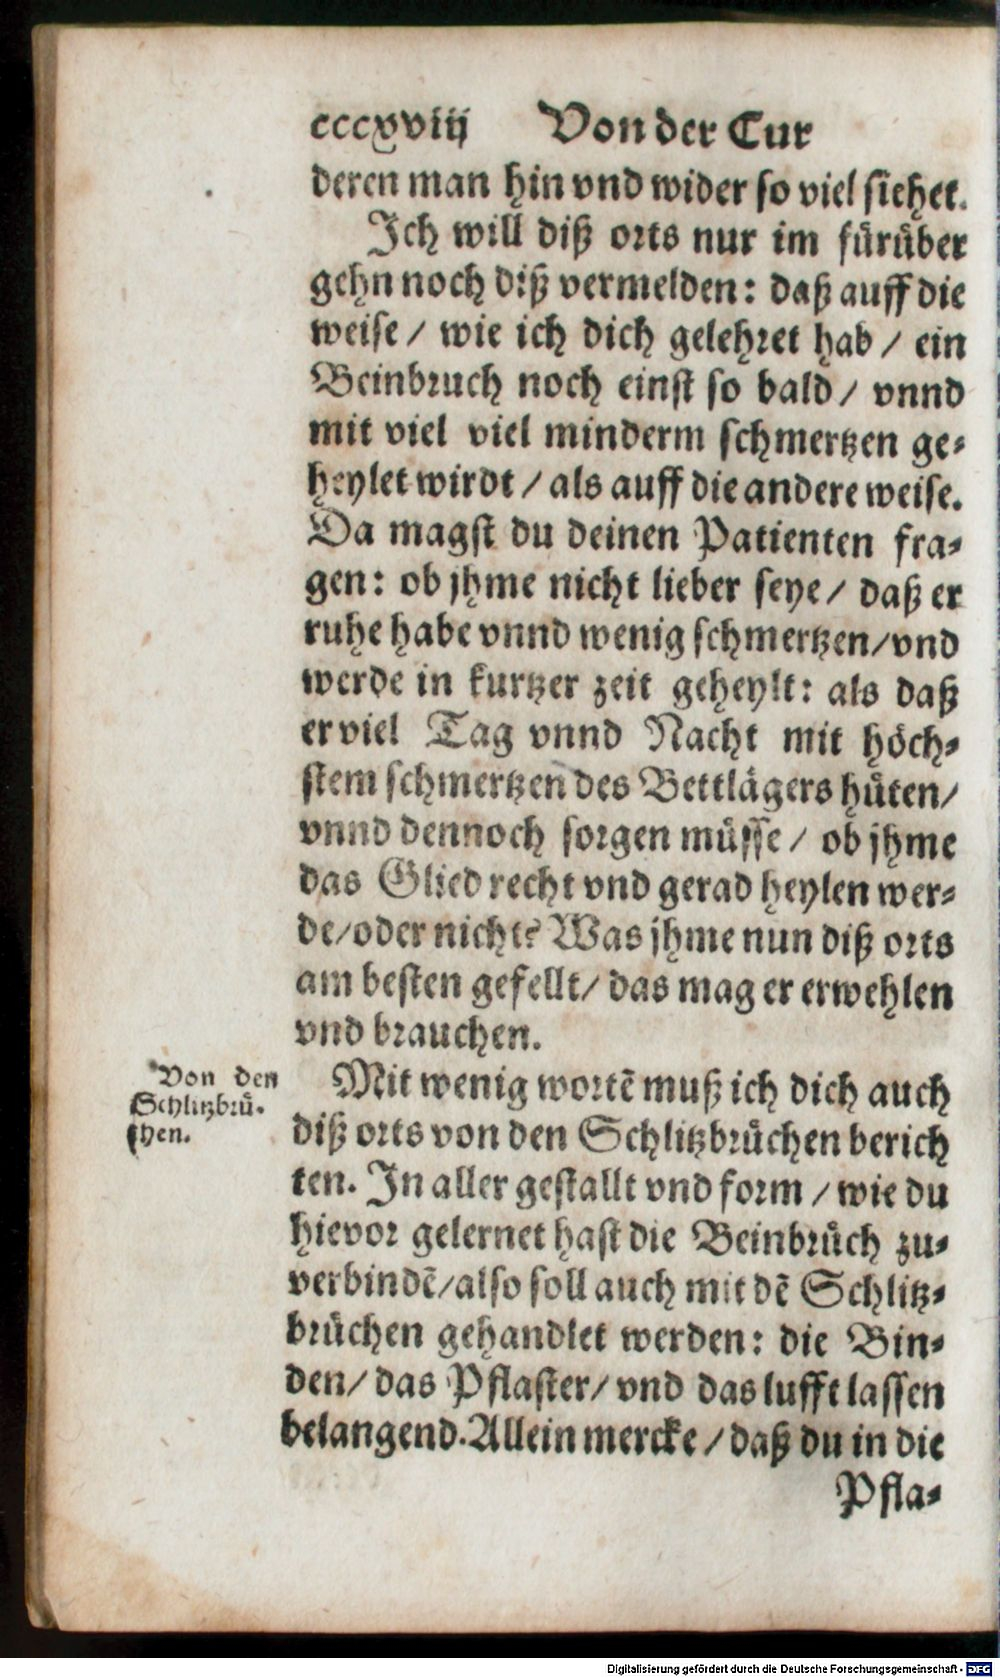 cccxviij Von der Cur
deren man hin vnd wider so viel siehet.
Ich will diß orts nur im fürüber
gehn noch diß vermelden: daß auff die
weise / wie ich dich gelehret hab / ein
Beinbruch noch einst so bald / vnnd
mit viel viel minderm schmertzen ge-
heylet wirdt / als auff die andere weise.
Da magst du deinen Patienten fra-
gen: ob jhme nicht lieber seye / daß er
ruhe habe vnnd wenig schmertzen/vnd
werde in kurtzer zeit geheylt: als daß
er viel Tag vnnd Nacht mit höch-
stem schmertzen des Bettlägers hüten/
vnnd dennoch sorgen müsse / ob jhme
das Glied recht vnd gerad heylen wer-
de/oder nicht? Was jhme nun diß orts
am besten gefellt/ das mag er erwehlen
vnd brauchen.
Von den
Schlitzbrü-
chen.
Mit wenig wortẽ muß ich dich auch
diß orts von den Schlitzbrüchen berich
ten. In aller gestallt vnd form / wie du
hievor gelernet hast die Beinbrüch zu-
verbindẽ/also soll auch mit dẽ Schlitz-
brüchen gehandlet werden: die Bin-
den/ das Pflaster/ vnd das lufft lassen
belangend. Allein mercke / daß du in die
Pfla-
Digitalisierung gefördert durch die Deutsche Forschungsgemeinschaft - DFG